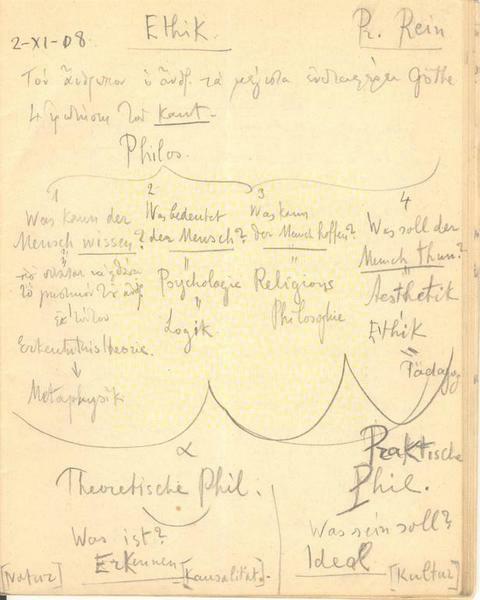 2-XI-08. Ethik. Pr. Rein
Τὸν ἄνθρωπον ὁ ἄνθρ. τὰ μέγιστα ἐνδιαφέρει Göthe
4 ἐρωτήσεις τοῦ Kant.
Philos.
1 2 3 4
Was kann der Mensch wissen?
Was bedeutet der Mensch?
Was kann der Mensch hoffen?
Was soll der Mensch thun?
Erkenntnistheorie.
Metaphysik
Psychologie
Logik
Religions
Philosophie
Aesthetik
Ethik
Pädagog
α
Theoretische Phil.
Was ist?
Erkennen
[Natur] [Kausalität].
Praktische
Phil.
Was sein soll?
Ideal
[Kultur]